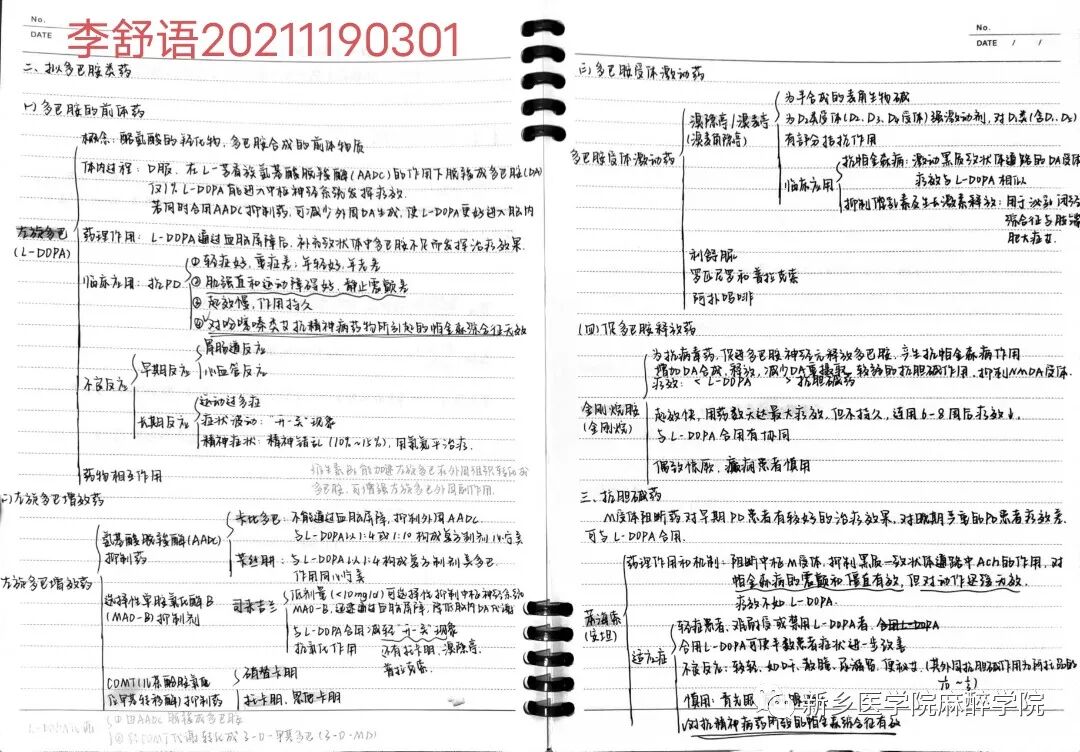 No.
DATE
李舒语20211190301
二、拟多巴胺类药
(一)多巴胺的前体药
左旋多巴
(L-DOPA)
概念：酪氨酸的羟化物，多巴胺合成的前体物质
体内过程：口服，在L-芳香族氨基酸脱羧酶(AADC)的作用下脱羧成多巴胺(DA)
仅1% L-DOPA能进入中枢神经系统发挥疗效
若同时合用AADC抑制药，可减少外周DA生成，使L-DOPA更多进入脑内
药理作用：L-DOPA通过血脑屏障后，补充纹状体中多巴胺不足而发挥治疗效果
临床应用：抗PD
①轻症好，重症差；年轻好，年老差
②肌强直和运动障碍好，静止震颤差
③起效慢，作用持久
④对吩噻嗪类等抗精神病药物所引起的帕金森综合征无效
不良反应
早期反应
胃肠道反应
心血管反应
长期反应
运动过多症
症状波动："开-关"现象
精神症状：精神错乱(10%~15%)，用氯氮平治疗
药物相互作用
维生素B6能加速左旋多巴在外周组织转化成
多巴胺，可增强左旋多巴外周副作用
(二)左旋多巴增效药
左旋多巴增效药
氨基酸脱羧酶(AADC)
抑制药
卡比多巴：不能通过血脑屏障，抑制外周AADC
与L-DOPA以1:4或1:10构成复方制剂心宁美
苄丝肼：与L-DOPA以1:4构成复方制剂美多巴
作用同心宁美
选择性单胺氧化酶B
(MAO-B)抑制剂
司来吉兰
低剂量(<10mg/d)可选择性抑制中枢神经系统
MAO-B，迅速通过血脑屏障，降低脑内DA代谢
与L-DOPA合用减轻"开-关"现象
抗氧化作用
还有托卡朋、溴隐亭、
普拉克索
COMT(儿茶酚胺氧位
位甲基转移酶)抑制药
硝替卡朋
托卡朋、恩他卡朋
L-DOPA代谢
①由AADC脱羧成多巴胺
②经COMT代谢转化成3-O-甲基多巴(3-O-MD)
No.
DATE / /
(三)多巴胺受体激动药
多巴胺受体激动药
溴隐亭/溴麦亭
(溴麦角隐亭)
为半合成的麦角生物碱
为D2类受体(D2、D3、D4受体)强激动剂，对D1类(含D1、D5)
有部分拮抗作用
临床应用
抗帕金森病：激动黑质纹状体通路的DA受体
疗效与L-DOPA相似
抑制催乳素及生长激素释放：用于泌乳闭经
综合征与肢端
肥大症等
利舒脲
罗匹尼罗和普拉克索
阿扑吗啡
(四)促多巴胺释放药
金刚烷胺
(金刚烷)
为抗病毒药，促进多巴胺神经元释放多巴胺，产生抗帕金森病作用
增加DA合成、释放，减少DA重摄取，较弱的抗胆碱作用，抑制NMDA受体
疗效：< L-DOPA > 抗胆碱药
起效快，用药数天达最大疗效，但不持久，连用6-8周后疗效↓
与L-DOPA合用有协同
偶致惊厥，癫痫患者慎用
三、抗胆碱药
M受体阻断药对早期PD患者有较好的治疗效果，对晚期严重的PD患者疗效差，
可与L-DOPA合用
苯海索
(安坦)
药理作用和机制：阻断中枢M受体，抑制黑质-纹状体通路中ACh的作用，对
帕金森病的震颤和僵直有效，但对动作迟缓无效
疗效不如L-DOPA
适应症
轻症患者，难耐受或禁用L-DOPA者，
合用L-DOPA可使半数患者症状进一步改善
不良反应：较轻，如口干、散瞳、尿潴留、便秘等 (其外周抗胆碱作用为阿托品的
1/10~1/2)
慎用：青光眼
对抗精神病药所致的帕金森综合征有效
新乡医学院麻醉学院